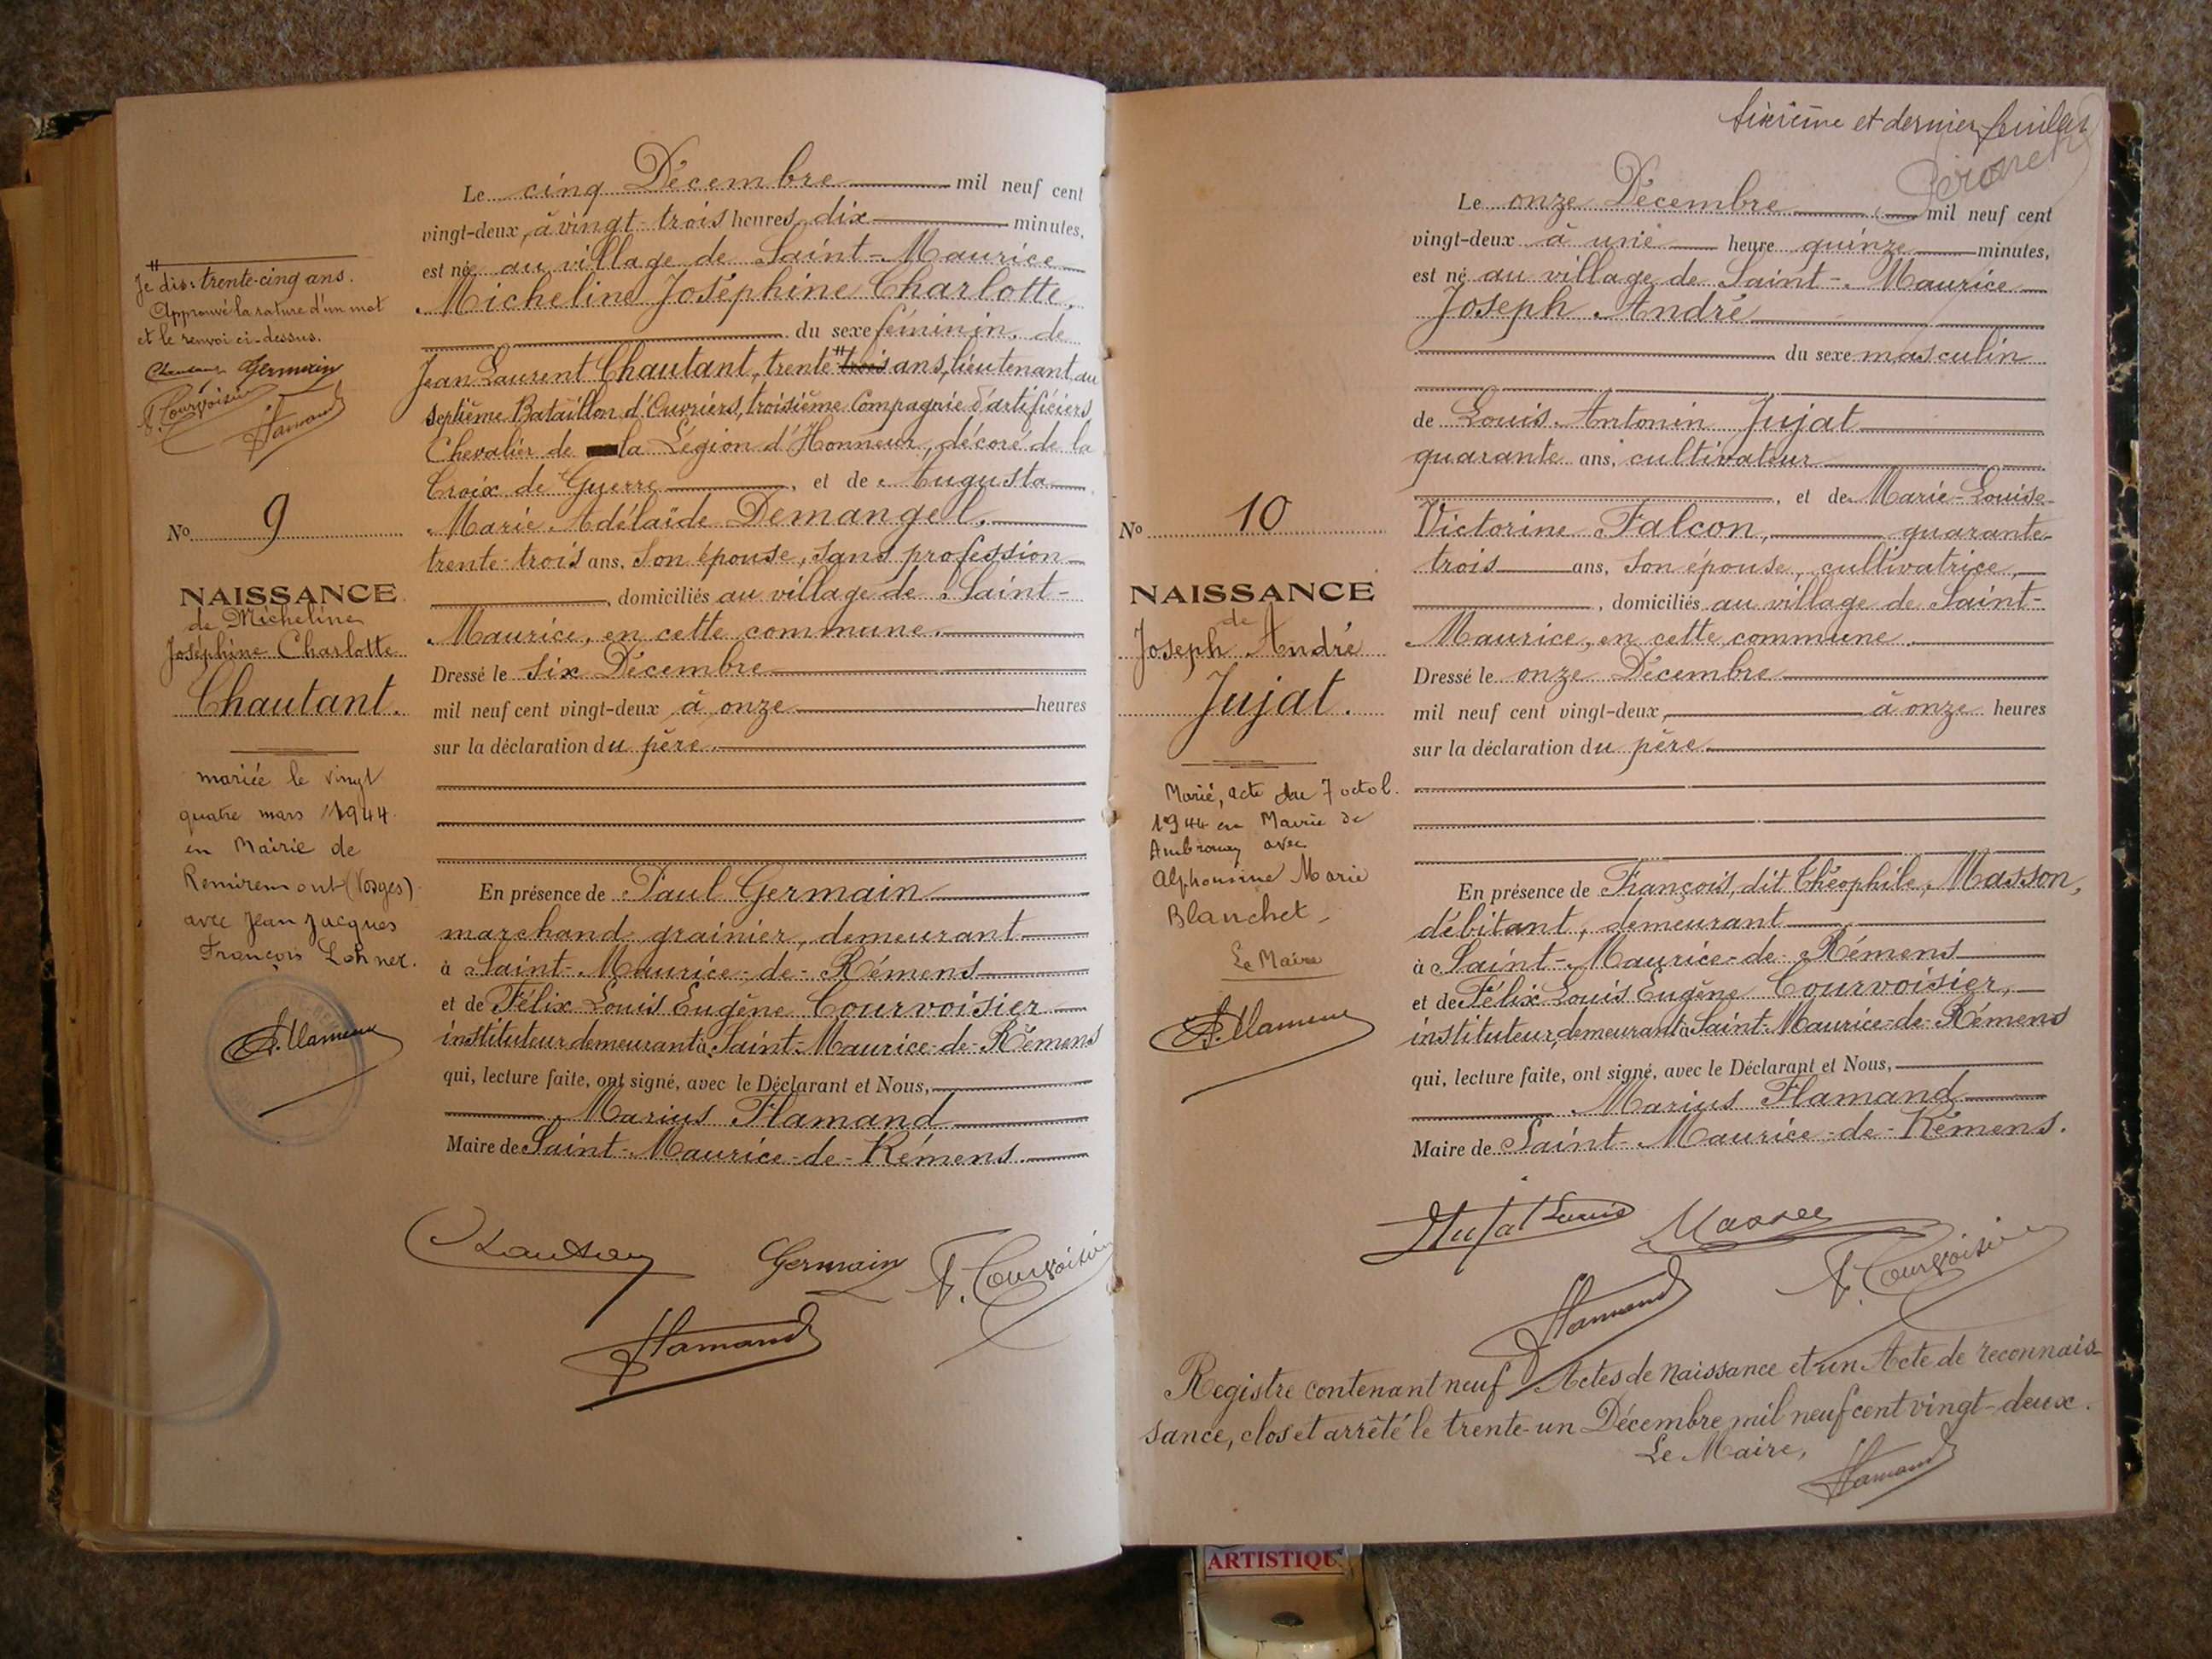 Je dis: trente-cinq ans.
Approuvé la rature d'un mot
et le renvoi ci-dessus.
Chautant Germain
F. Courvoisier
Flamand
No 9
NAISSANCE
de Micheline
Joséphine Charlotte
Chautant.
mariée le vingt
quatre mars 1944
en Mairie de
Remiremont (Vosges)
avec Jean Jacques
François Lohner.
Le cinq Décembre mil neuf cent
vingt-deux, à vingt-trois heures, dix minutes,
est née au village de Saint-Maurice
Micheline Joséphine Charlotte.
du sexe féminin, de
Jean Laurent Chautant, trente # trois ans, lieutenant au
septième Bataillon d'Ouvriers, troisième Compagnie d'artificiers
Chevalier de la Légion d'Honneur, décoré de la
Croix de Guerre, et de Augusta
Marie Adélaïde Demangel.
trente-trois ans, son épouse, sans profession
, domiciliés au village de Saint-
Maurice, en cette commune.
Dressé le six Décembre
mil neuf cent vingt-deux à onze heures
sur la déclaration du père.
En présence de Paul Germain
marchand grainier, demeurant
à Saint-Maurice-de-Rémens
et de Félix Louis Eugène Courvoisier
instituteur demeurant à Saint-Maurice-de-Rémens
qui, lecture faite, ont signé, avec le Déclarant et Nous,
Marius Flamand
Maire de Saint-Maurice-de-Rémens.
Chautant Germain F. Courvoisier
Flamand
sixième et dernier feuillet
No 10
NAISSANCE
de
Joseph André
Jujat.
Marié, acte du 7 octob.
1944 en Mairie de
Ambronay avec
Alphonsine Marie
Blanchet
Le Maire
Le onze Décembre mil neuf cent
vingt-deux à une heure quinze minutes,
est né au village de Saint-Maurice
Joseph André
du sexe masculin
de Louis Antonin Jujat
quarante ans, cultivateur
, et de Marie-Louise-
Victorine Falcon, quarante-
trois ans, son épouse, cultivatrice,
, domiciliés au village de Saint-
Maurice, en cette commune.
Dressé le onze Décembre
mil neuf cent vingt-deux, à onze heures
sur la déclaration du père.
En présence de François, dit Théophile, Masson,
débitant, demeurant
à Saint-Maurice-de-Rémens
et de Félix Louis Eugène Courvoisier,
instituteur, demeurant à Saint-Maurice-de-Rémens
qui, lecture faite, ont signé, avec le Déclarant et Nous,
Marius Flamand
Maire de Saint-Maurice-de-Rémens.
Jujat Louis Masson
Flamand F. Courvoisier
Registre contenant neuf Actes de naissance et un Acte de reconnais-
sance, clos et arrêté le trente-un Décembre mil neuf cent vingt-deux.
Le Maire,
Flamand
ARTISTIQUE